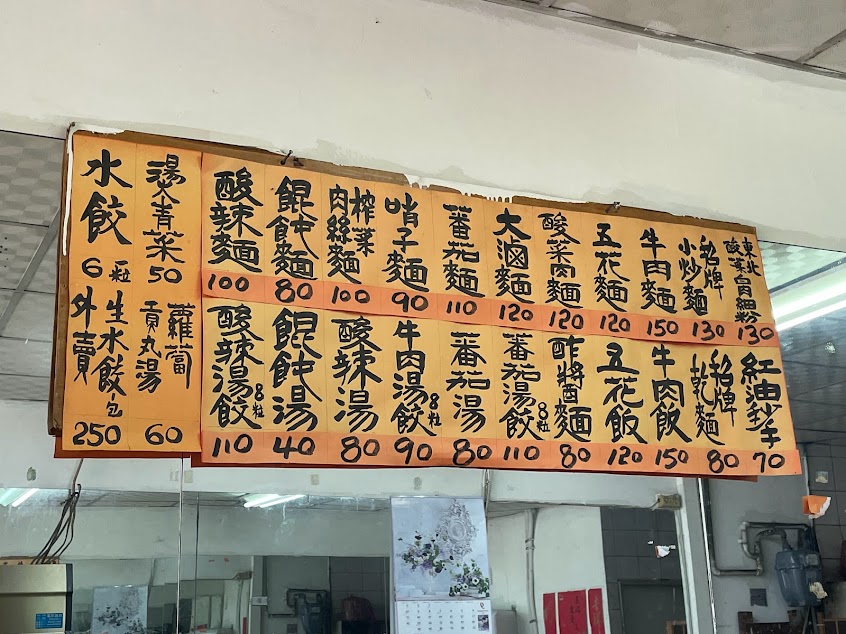 水餃
6一粒
燙青菜
50
酸辣麵
100
餛飩麵
80
榨菜
肉絲麵
100
哨子麵
90
蕃茄麵
110
大滷麵
120
酸菜肉麵
120
五花麵
120
牛肉麵
150
招牌
小炒麵
130
東北
酸菜白肉細粉
130
外賣
生水餃包
250
蘿蔔
貢丸湯
60
酸辣湯餃8粒
110
餛飩湯
40
酸辣湯
80
牛肉湯餃8粒
90
蕃茄湯
80
蕃茄湯餃8粒
110
酢醬麵
80
五花飯
120
牛肉飯
150
招牌
乾麵
80
紅油抄手
70